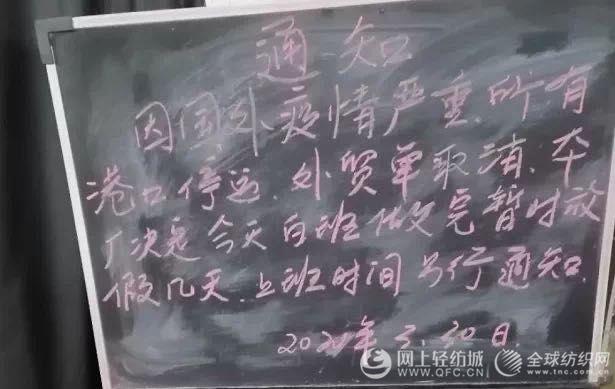 通知
因国外疫情严重,所有
港口停运.外贸单取消.本
厂决定今天白班做完暂时放
假几天.上班时间另行通知.
2020年3.30日.
网上轻纺城
WWW.QFC.CN
全球纺织网
www.tnc.com.cn